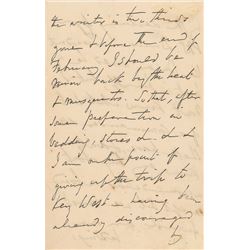 the winter is two thirds
gone & before the end of
February I should be
driven back by the heat
& mosquitos. So that, after
some preparation in
bedding, stores &c &c &
I am on the point of
giving up the trip to
Key West — having been
already discouraged
by